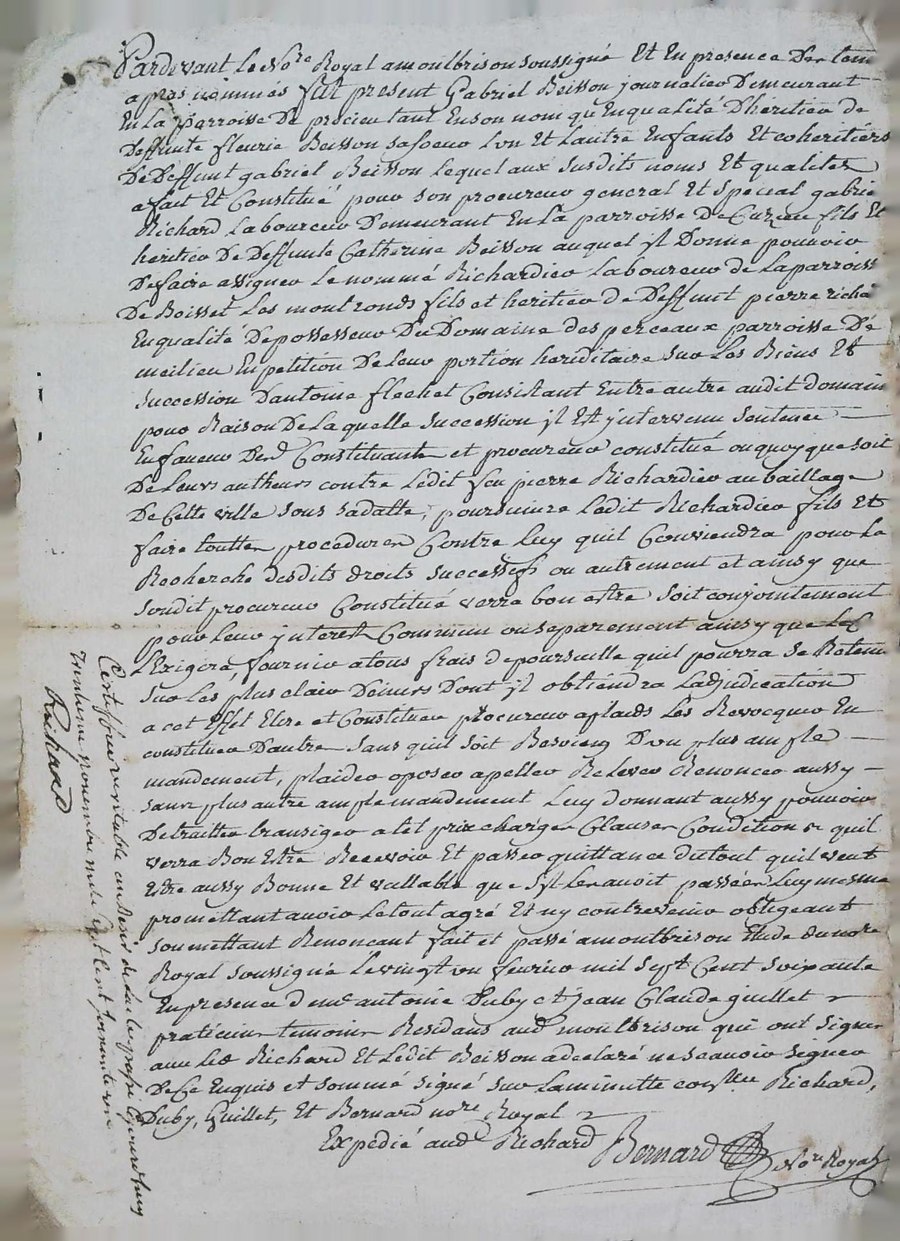 Pardevant Le Nore Royal a montbrison soussigné Et En presence Des tem
apres nommés fut present Gabriel Beisson journalier Demeurant
En La parroisse De precieu tant En son nom qu'En qualité D'heritier de
Deffunte fleurie Beisson sa soeur L'un Et L'autre Enfants Et coheritiers
De Deffunt gabriel Beisson Lequel aux susdits noms Et qualités
a fait Et Constitué pour son procureur general Et special gabrie
Richard Laboureur Demeurant En La parroisse De Cuzieu fils Et
heritier De Deffunte Catherine Beisson auquel jl Donne pouvoir
De faire assigner Le nommé Richardier Laboureur de La parroiss
De Boisset Les montronds fils et heritier de Deffunt pierre richa
En qualité De possesseur Du Domaine des perceaux parroisse De
meilieu En petition De Leur portion hereditaire sur Les Biens Et
succession D'antoine flechet Consistant Entre autre audit domain
pour Raison De La quelle succession jl Est jntervenu sentence
En faveur Desd Constituants et procureur constitué ou quoy que soit
De Leurs autheurs contre Ledit feu pierre Richardier au bailliage
De Cette ville sous sa datte, poursuivre Ledit Richardier fils Et
faire touttes procedures Contre Luy quil Conviendra pour La
Recherche desdits droits successifs ou autrement et ainsy que
soudit procureur Constitué verra bon estre soit conjointement
pour Leur jnterest Commun ou separement ainsy que Le C
L'Exigera, fournir a tous frais de poursuitte quil pourra se Retenir
sur Les plus clair Deniers Dont jl obtiendra L'adjudication
a cet Effet Elire et Constituer procureur aplaids Les Revocquer En
constituer D'autres sans quil soit Besoing D'un plus ample
mandement, plaider oposer apeller Relever Renoncer aussy
sans plus autre ample mandement Luy donnant aussy pouvoir
De traitter transiger a tel prix charges Clauses Conditions quil
verra Bon Etre Recevoir Et passer quittance du tout quil veut
Etre aussy Bonne Et vallable que s'jl Les avoit passées Luy mesme
promettant avoir Le tout agré Et ny contrevenir obligeant
soumettant Renoncant fait et passé a montbrison Etude du nore
Royal soussigné Le vingt un fevrier mil sept Cent soixante
En presence d me antoine Duby et jean Claude guillet
praticiens temoins Residans aud montbrison qui ont signer
avec Led Richard Et Ledit Beisson a declaré ne scavoir signer
De Ce Enquis et sommé signé sur La minutte Richard,
Duby, Guillet, Et Bernard nore Royal
Expedié aud Richard Bernard Nore Royal
Certifié veritable au desir de
trentieme novembre mille sept cent soixante
Richard